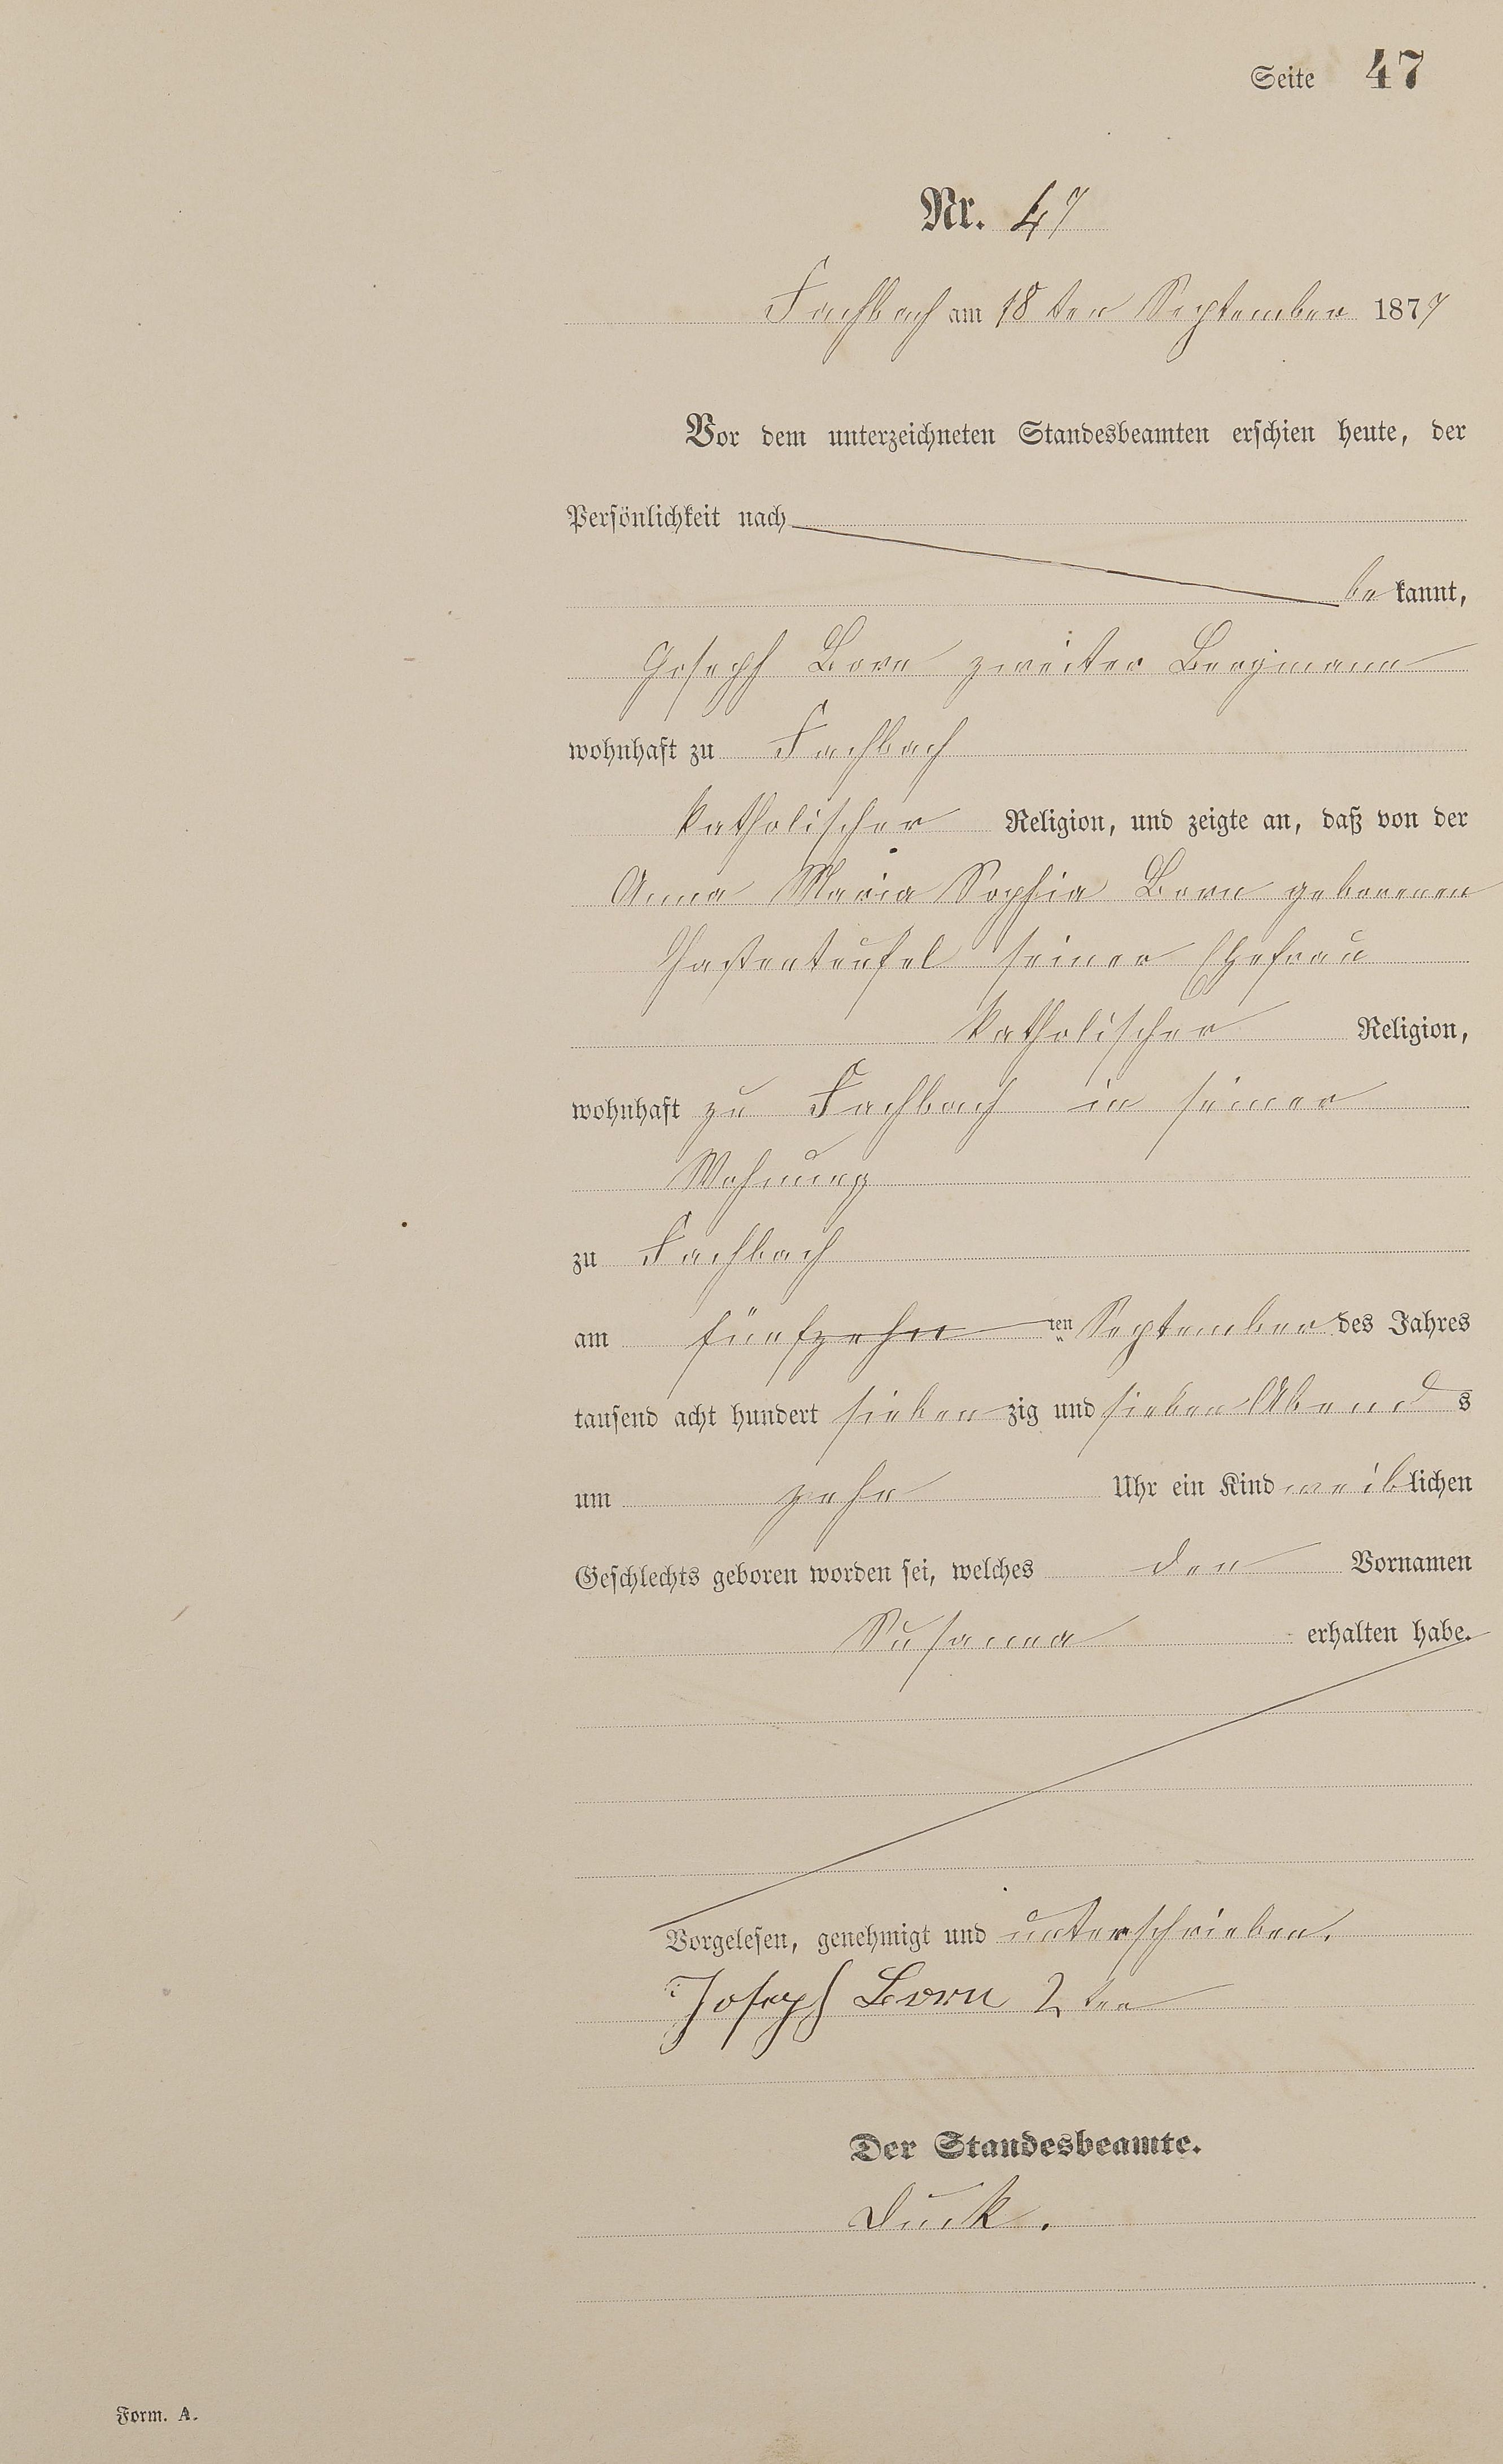 Seite 47
Nr. 47
Fachbach am 18 ten September 1877
Vor dem unterzeichneten Standesbeamten erschien heute, der
Persönlichkeit nach
be kannt,
Joseph Born zweiter Bergmann
wohnhaft zu Fachbach
katholischer Religion, und zeigte an, daß von der
Anna Maria Sophia Born geborenen
Hastenteufel seiner Ehefrau
katholischer Religion,
wohnhaft zu Fachbach in seiner
Wohnung
zu Fachbach
am fünfzehn ten September des Jahres
tausend acht hundert sieben zig und sieben Abend s
um zehn Uhr ein Kind weiblichen
Geschlechts geboren worden sei, welches den Vornamen
Susanna erhalten habe.
Vorgelesen, genehmigt und unterschrieben.
Joseph Born 2 ter
Der Standesbeamte.
Duck.
Form. A.